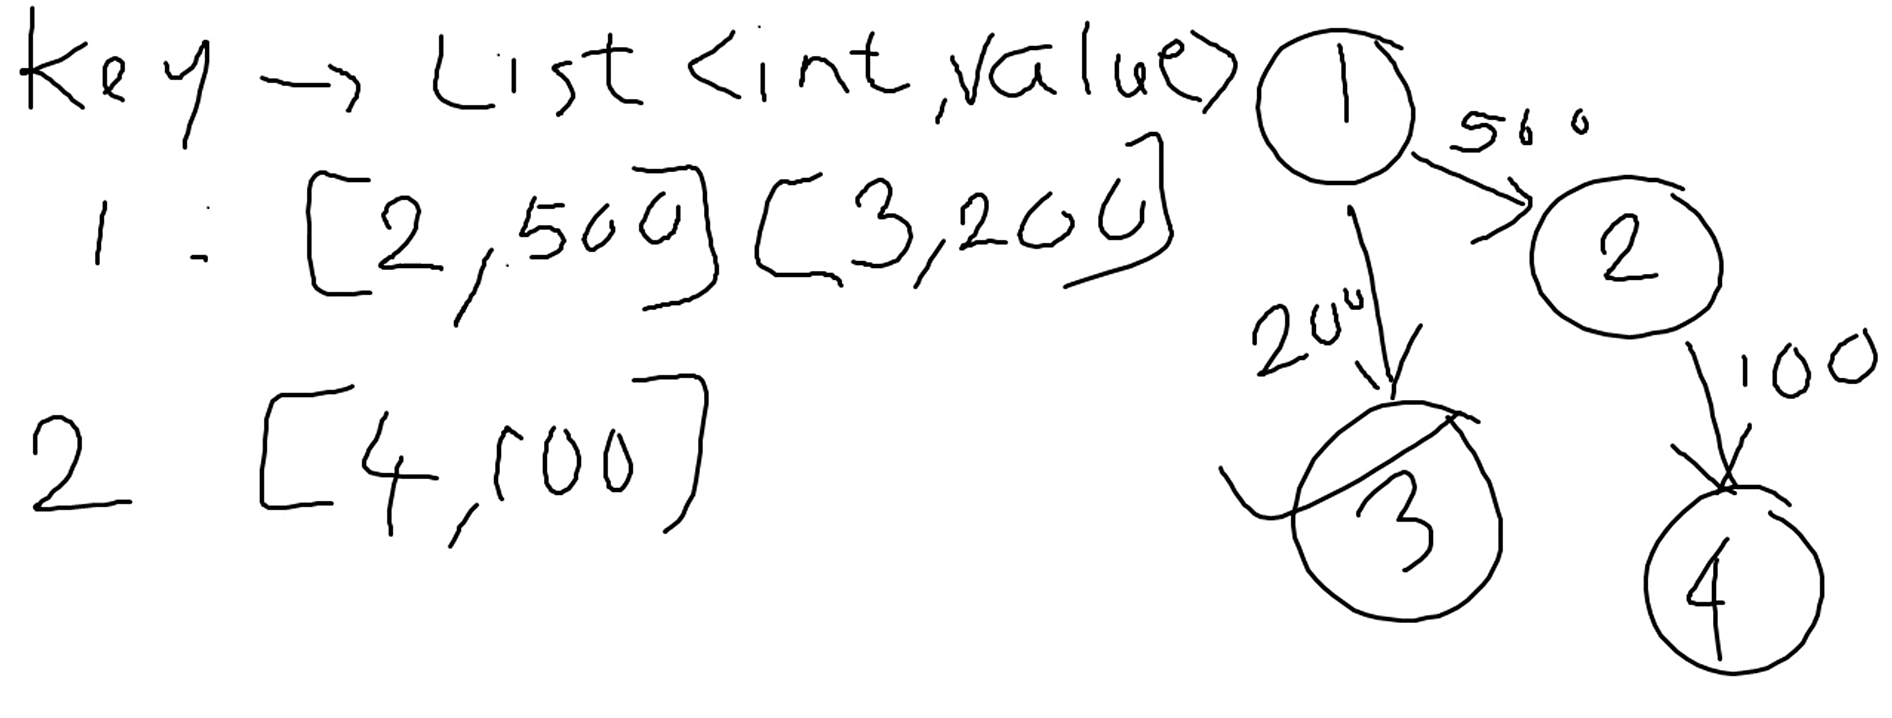 key → List <int,value>
1 - [2,500] [3,200]
2 [4,100]
1
500
2
200
100
3
4